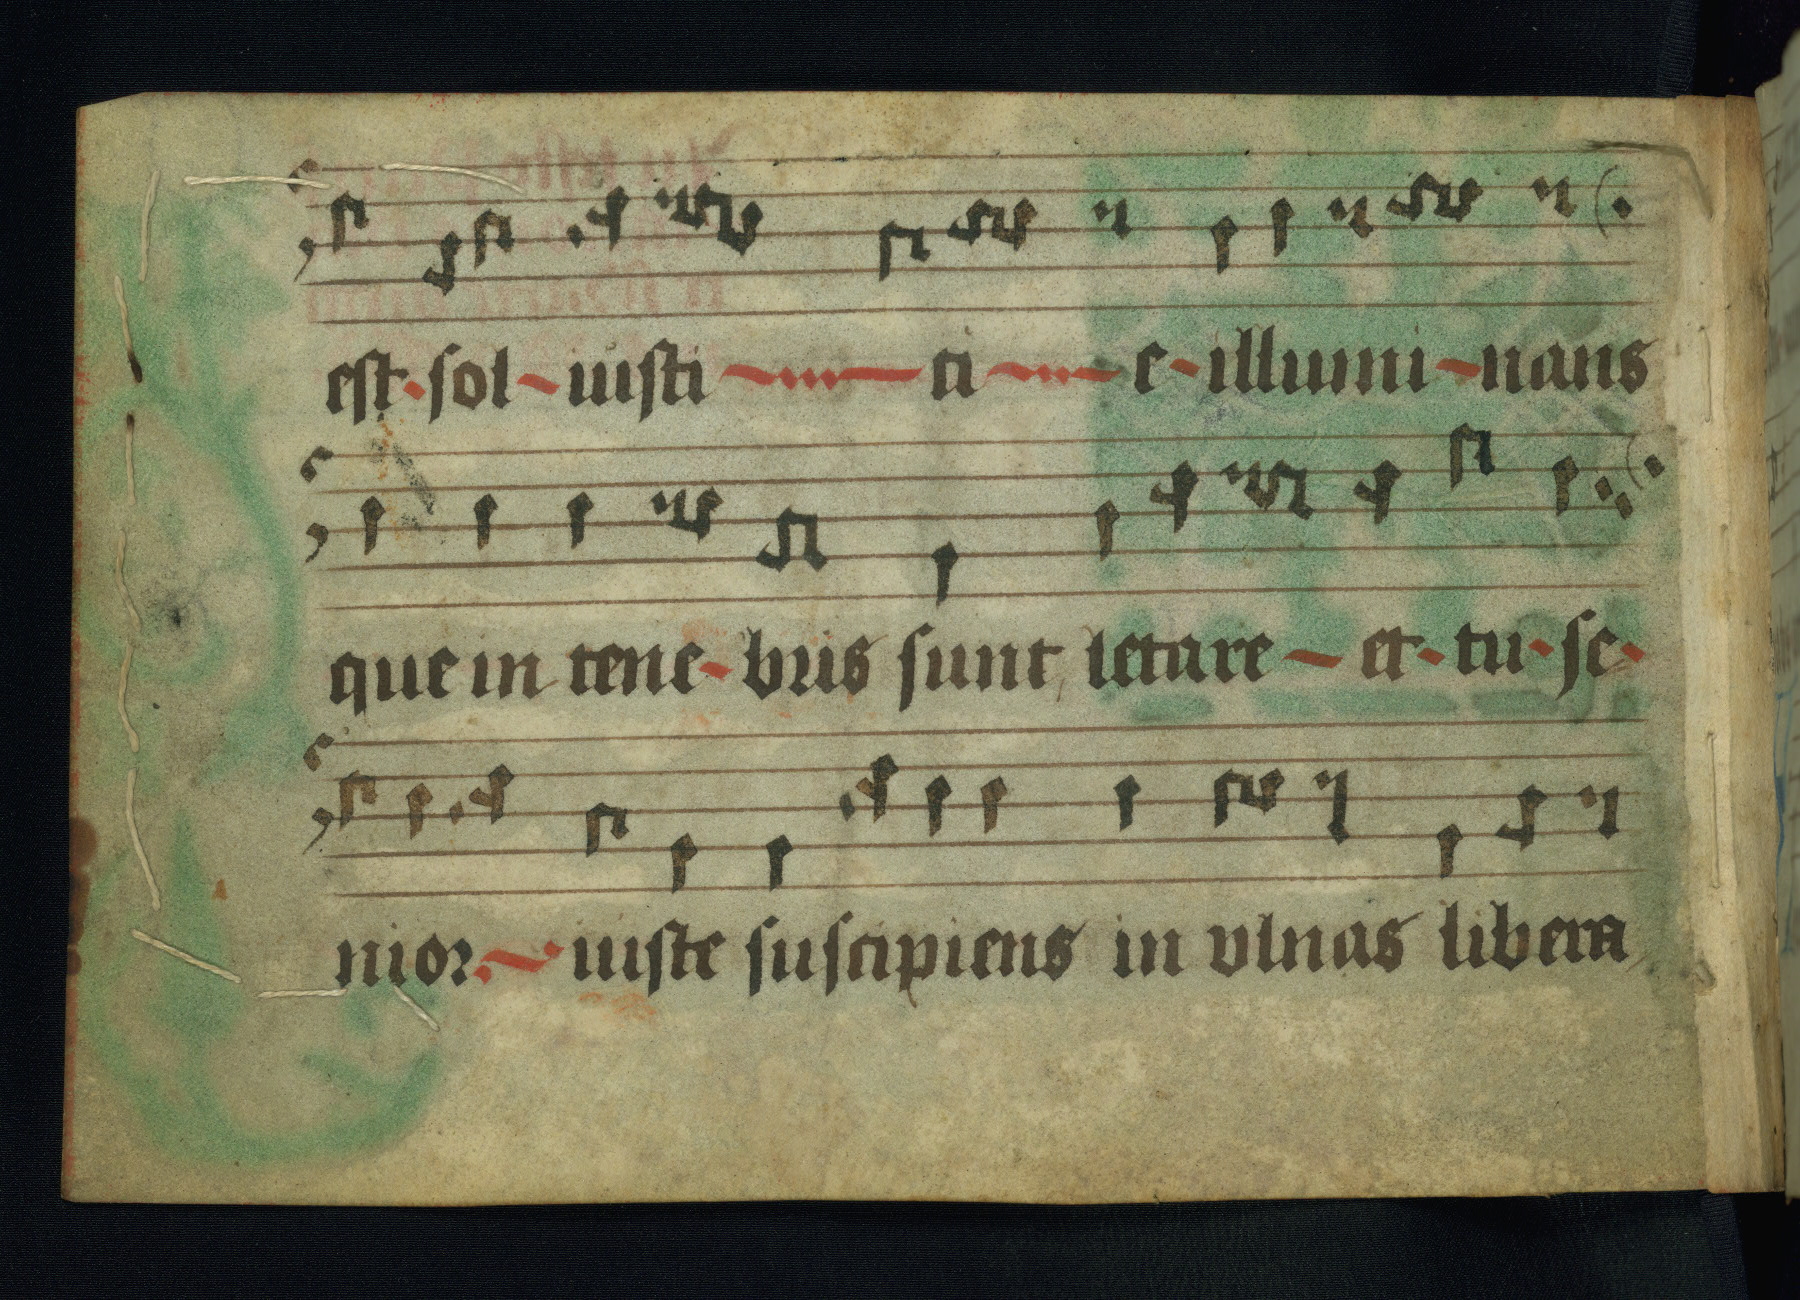 est sol iuisti ti e illumi nans
que in tene bris sunt letare et tu se
nior iuiste suscipiens in vlnas libera